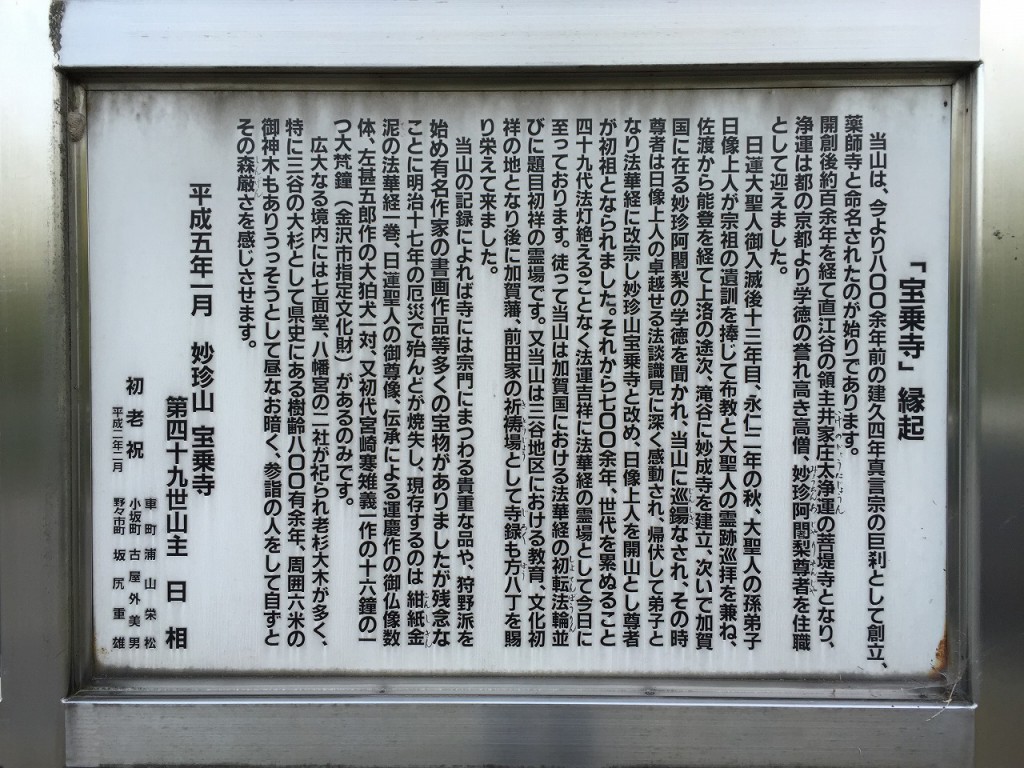 「宝乗寺」縁起
当山は、今より八〇〇余年前の建久四年真言宗の巨刹として創立、
薬師寺と命名されたのが始りであります。
開創後約百余年を経て直江谷の領主井家庄太浄運の菩提寺となり、
浄運は都の京都より学徳の誉れ高き高僧、妙珍阿闍梨尊者を住職
として迎えました。
日蓮大聖人御入滅後十三年目、永仁二年の秋、大聖人の孫弟子
日像上人が宗祖の遺訓を捧じて布教と大聖人の霊跡巡拝を兼ね、
佐渡から能登を経て上洛の途次、滝谷に妙成寺を建立、次いで加賀
国に在る妙珍阿闍梨の学徳を聞かれ、当山に巡錫なされ、その時
尊者は日像上人の卓越せる法談識見に深く感動され、帰伏して弟子と
なり法華経に改宗し妙珍山宝乗寺と改め、日像上人を開山とし尊者
が初祖となられました。それから七〇〇余年、世代を累ぬること
四十九代法灯絶えることなく法運吉祥に法華経の霊場として今日に
至っております。徒って当山は加賀国における法華経の初転法輪並
びに題目初祥の霊場です。又当山は三谷地区における教育、文化初
祥の地となり後に加賀藩、前田家の祈祷場として寺録も方八丁を賜
り栄えて来ました。
当山の記録によれば寺には宗門にまつわる貴重な品や、狩野派を
始め有名作家の書画作品等多くの宝物がありましたが残念な
ことに明治十七年の厄災で殆んどが焼失し、現存するのは紺紙金
泥の法華経一巻、日蓮聖人の御尊像、伝承による運慶作の御仏像数
体、左甚五郎作の大狛犬一対、又初代宮崎寒雉義一作の十六鐘の一
つ大梵鐘（金沢市指定文化財）があるのみです。
広大なる境内には七面堂、八幡宮の二社が祀られ老杉大木が多く、
特に三谷の大杉として県史にある樹齢八〇〇有余年、周囲六米の
御神木もありうっそうとして昼なお暗く、参詣の人をして自ずと
その森厳さを感じさせます。
平成五年一月　妙珍山 宝乗寺
第四十九世山主　日相
初老祝
平成二年二月
車町　浦山栄松
小坂町　古屋外美男
野々市町　坂尻重雄